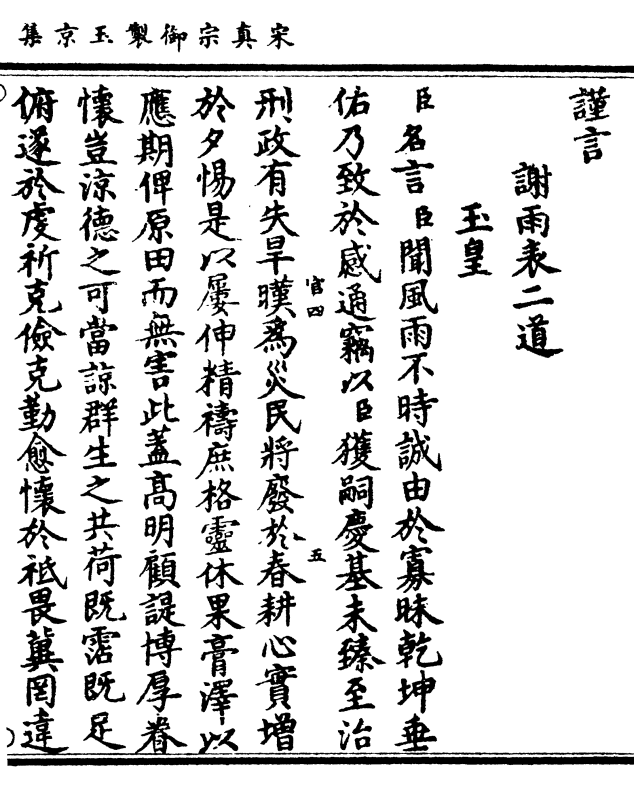 宋真宗御製玉京集
謹言
謝雨表二道
玉皇
臣名言臣聞風雨不時誠由於寡昧乾坤垂
佑乃致於感通竊以臣獲嗣慶基未臻至治
官四
五
刑政有失旱暵為災民將廢於春耕心實增
於夕惕是以屢伸精禱庶格靈休果膏澤以
應期俾原田而無害此蓋高明顧諟博厚眷
懷豈涼德之可當諒群生之共荷既霑既足
俯遂於虔祈克儉克勤愈懷於祗畏冀罔違